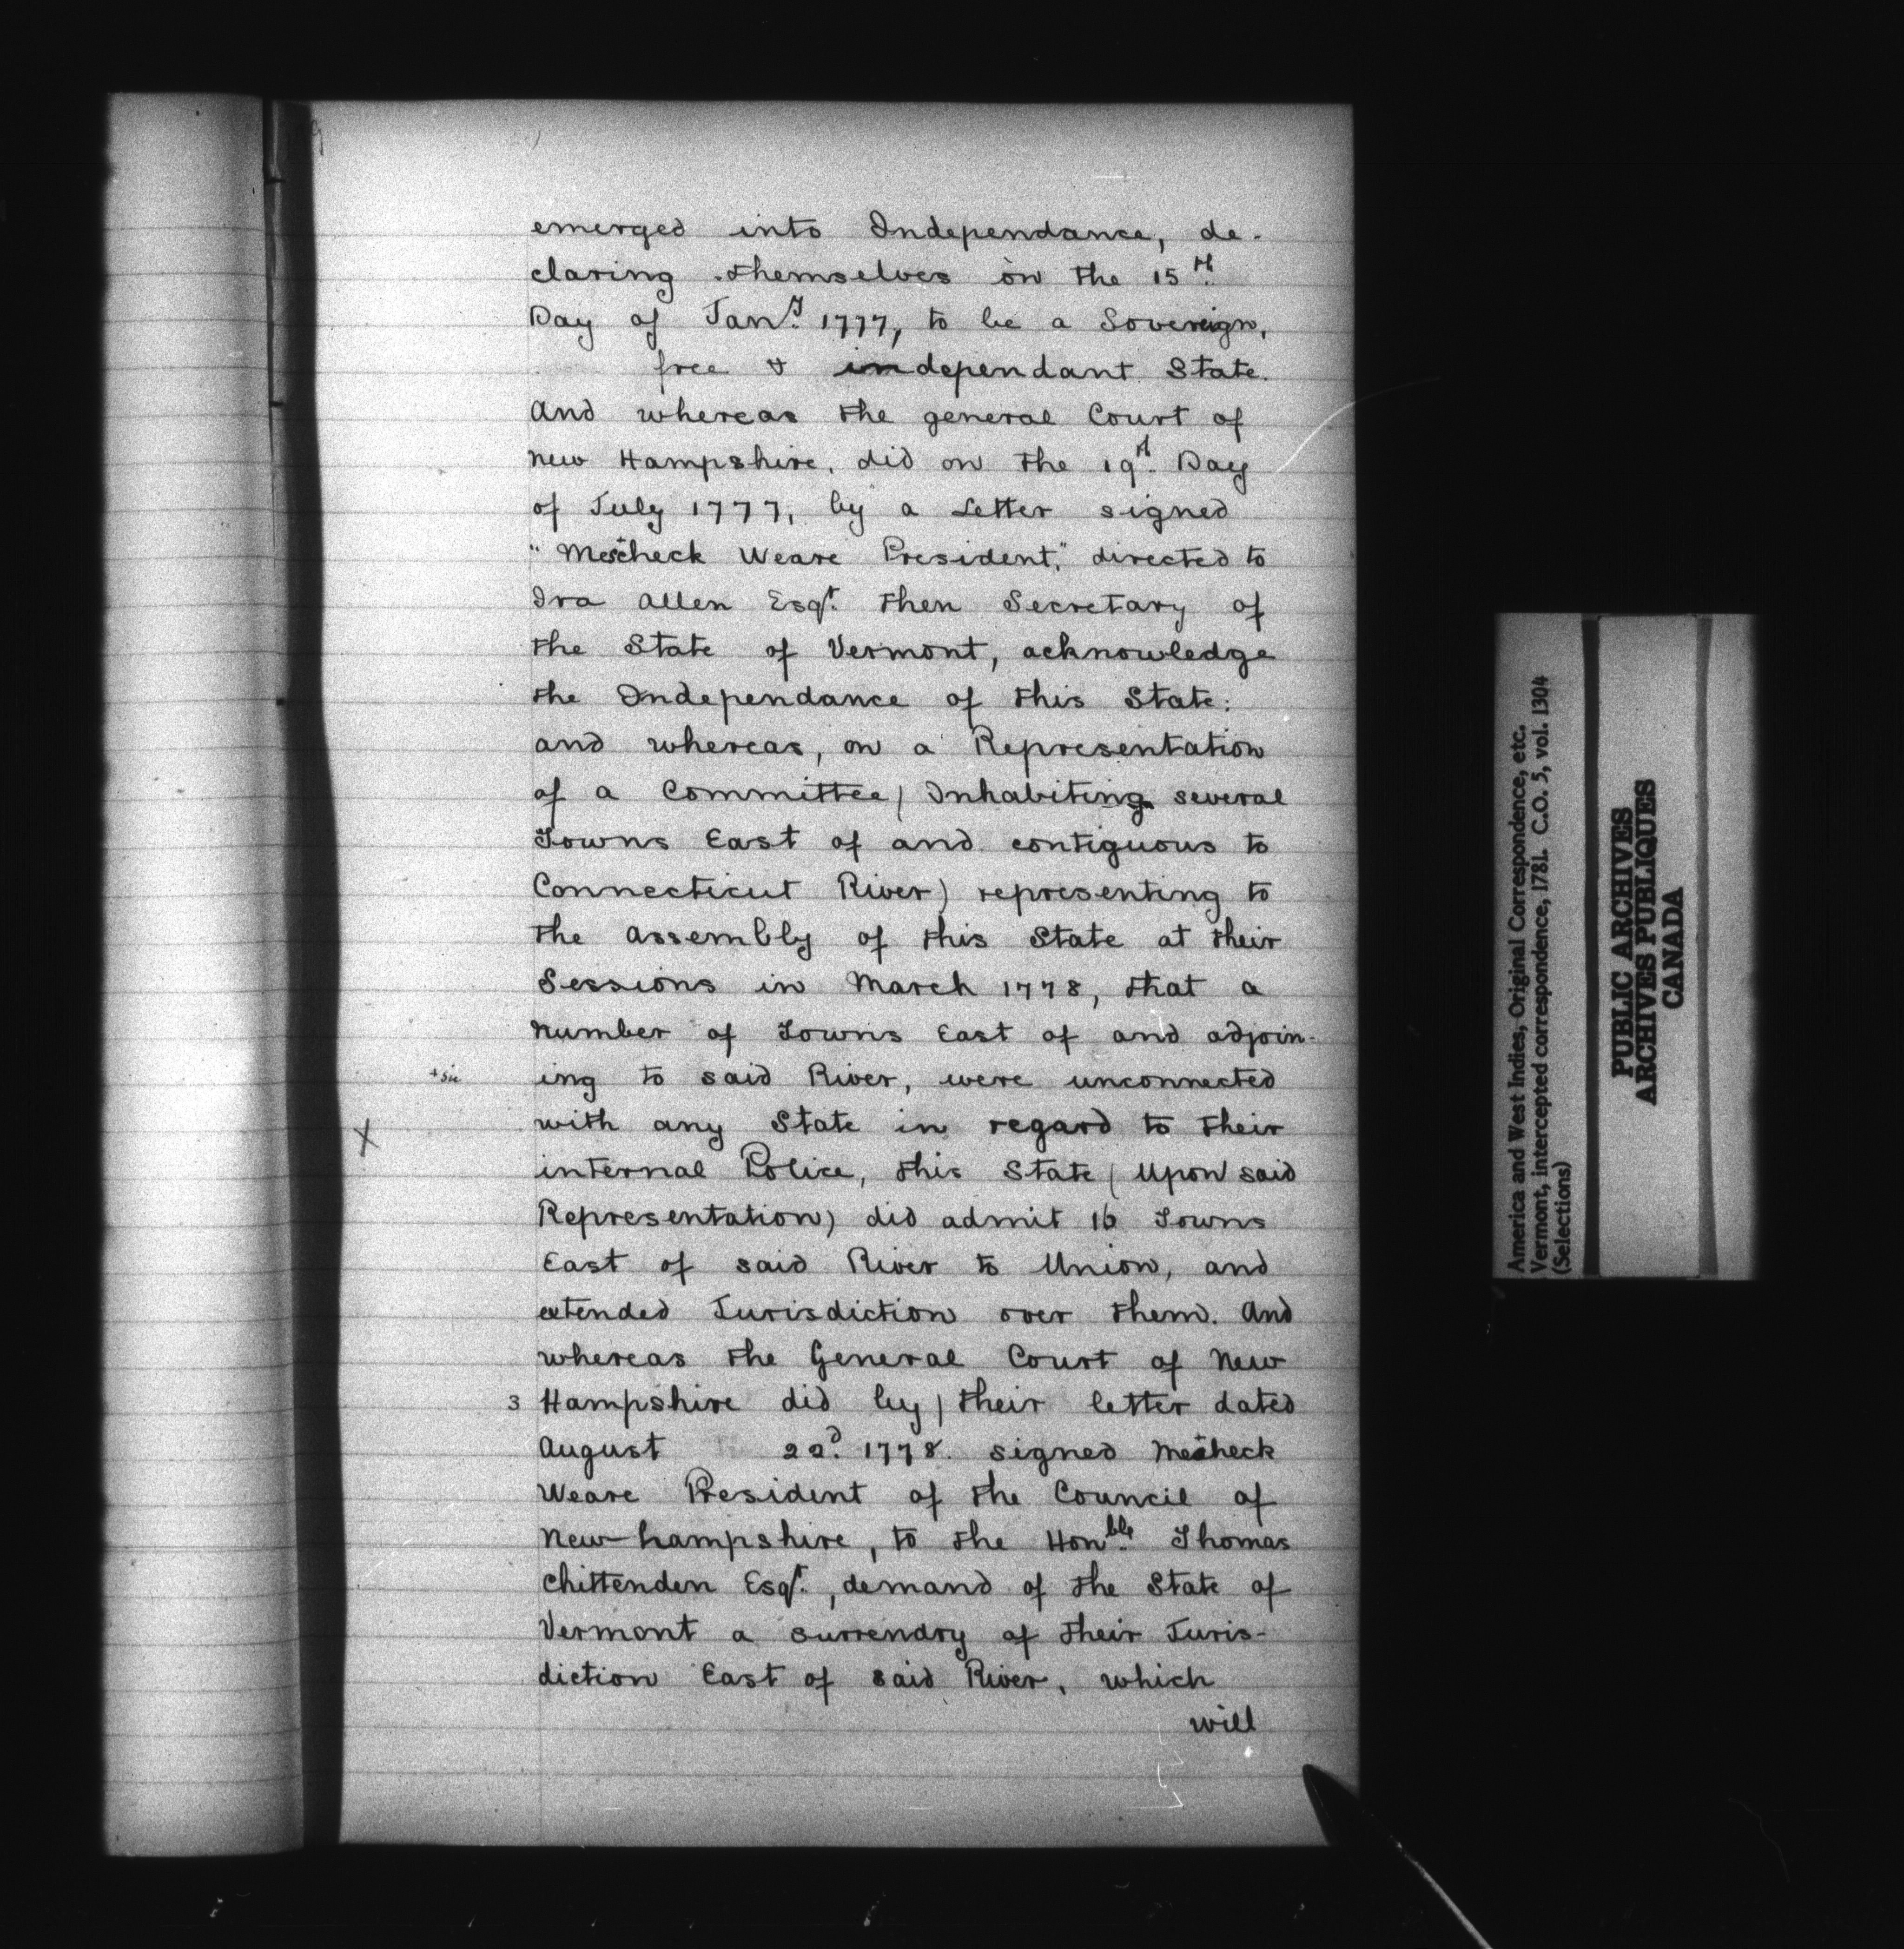 emerged into Independance, de-
claring themselves on the 15th.
Day of Jany. 1777, to be a Sovereign,
free & independant State.
And whereas the general Court of
New Hampshire, did on the 19th. Day
of July 1777, by a Letter signed
"Mescheck Weare President," directed to
Ira Allen Esqr. then Secretary of
the State of Vermont, acknowledge
the Independance of this State:
and whereas, on a Representation
of a Committee, (Inhabiting several
Towns East of and contiguous to
Connecticut River) representing to
the Assembly of this State at their
Sessions in March 1778, that a
number of Towns East of and adjoin-
+sic ing to said River, were unconnected
X with any State in regard to their
internal Police, this State (Upon said
Representation) did admit 16 Towns
East of said River to Union, and
extended Jurisdiction over them. And
whereas the General Court of New
3 Hampshire did by / their letter dated
August 22d. 1778. signed Mesheck
Weare President of the Council of
New-hampshire, to the Honble. Thomas
Chittenden Esqr., demand of the State of
Vermont a surrendry of their Juris-
diction East of said River, which
will
America and West Indies, Original Correspondence, etc.
Vermont, intercepted correspondence, 1781. C.O. 5, vol. 1304
(Selections)
PUBLIC ARCHIVES
ARCHIVES PUBLIQUES
CANADA